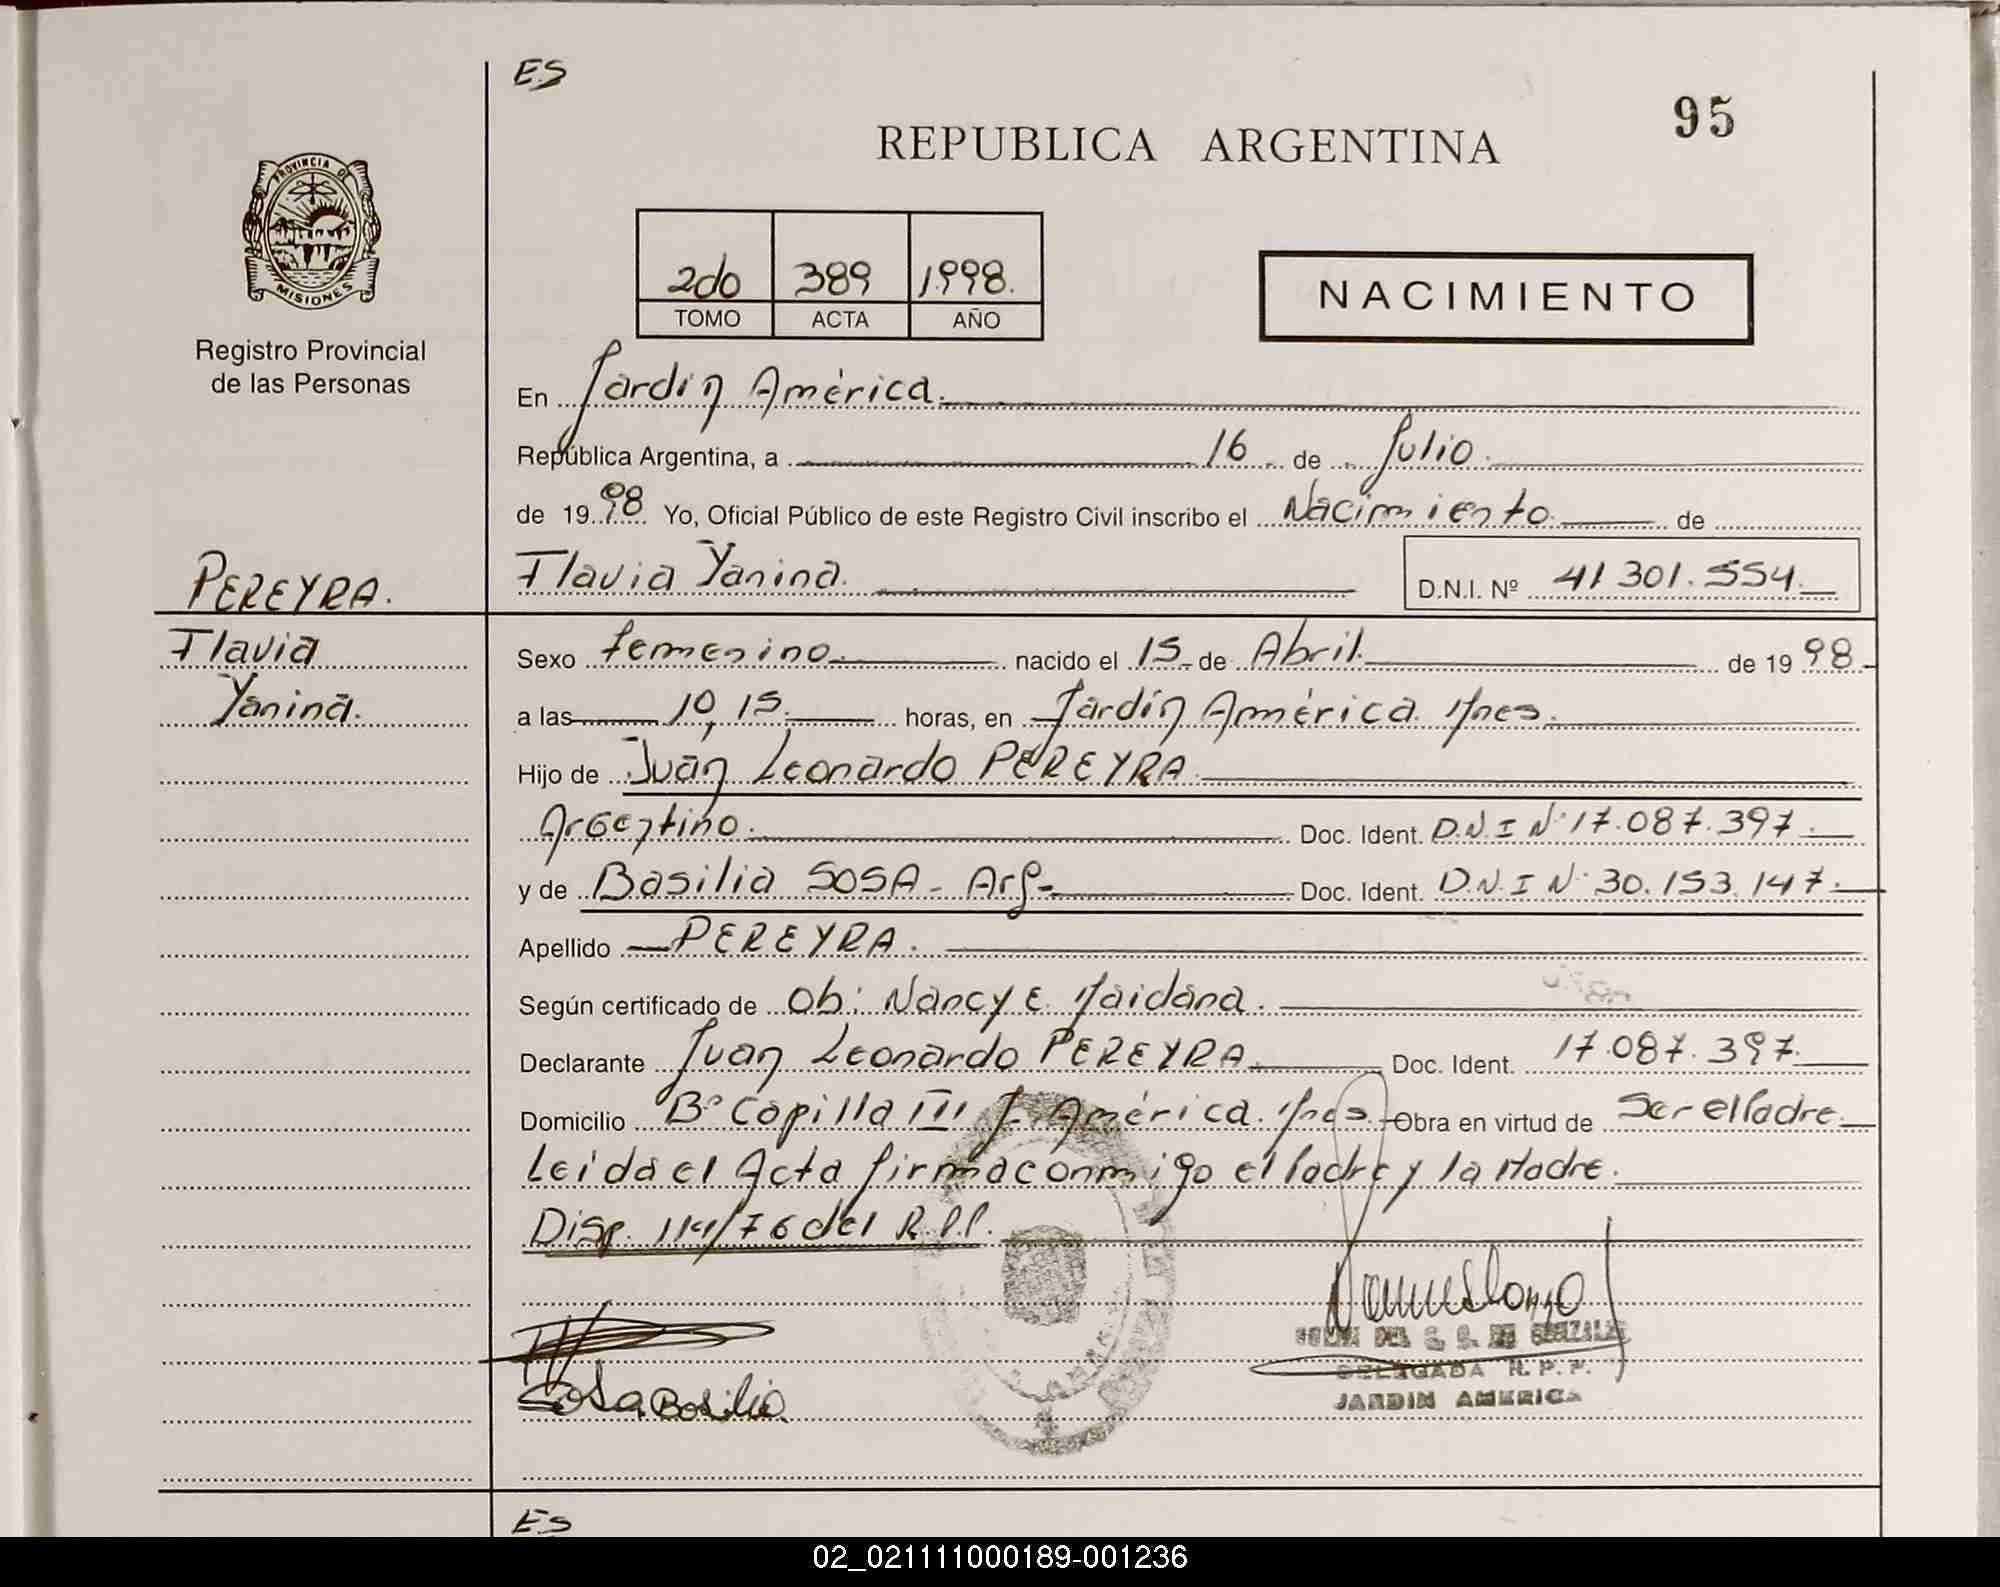 ES
95
REPUBLICA ARGENTINA
PROVINCIA DE
MISIONES
Registro Provincial
de las Personas
2do 389 1.998.
TOMO ACTA AÑO
NACIMIENTO
En Jardín América.
República Argentina, a 16 de Julio.
de 19 98 Yo, Oficial Público de este Registro Civil inscribo el Nacimiento de
PEREYRA.
Flavia Yanina. D.N.I. Nº 41 301.554.
Flavia
Sexo femenino. nacido el 15 de Abril. de 19 98
Yanina.
a las 10,15. horas, en Jardín América Mnes.
Hijo de Juan Leonardo PEREYRA
Argentino. Doc. Ident. D.N.I Nº 17.087.397.
y de Basilia SOSA - Arg- Doc. Ident. D.N.I Nº 30.153.147.
Apellido PEREYRA.
Según certificado de Ob: Nancy E. Maidana.
Declarante Juan Leonardo PEREYRA. Doc. Ident. 17.087.397.
Domicilio Bº Copilla III J. América. Mnes. Obra en virtud de Ser el Padre
Leida el Acta firma conmigo el Padre y la Madre.
Disp. 114/76 del R.P.P.
Sosa Basilia
DELEGADA R. P. P.
JARDIN AMERICA
ES
02_021111000189-001236